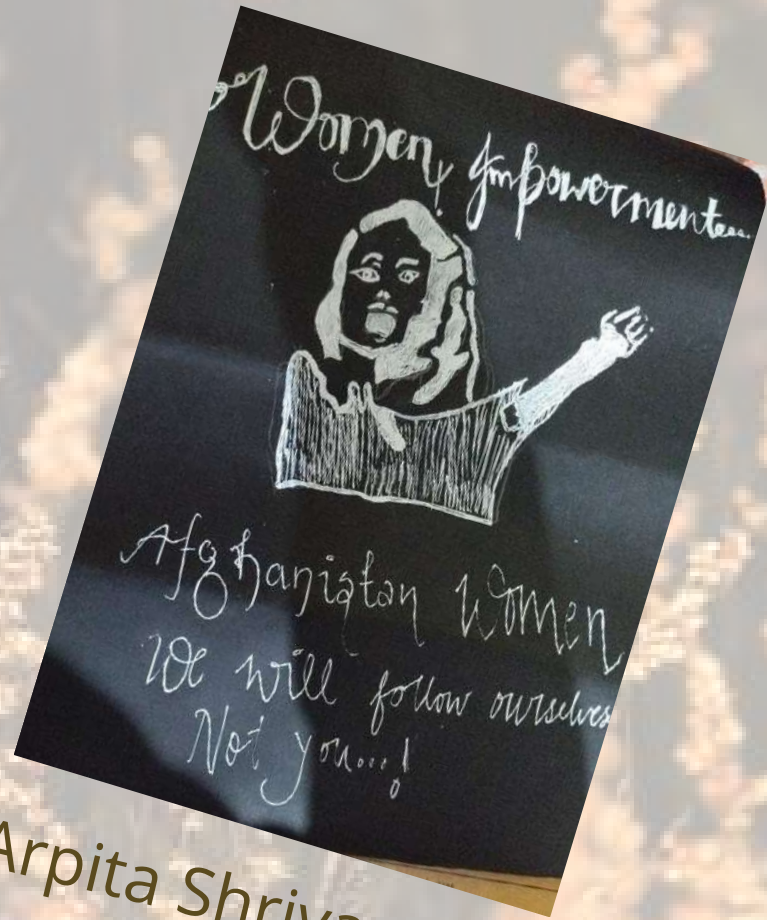 Women Impowerment....
Afghanistan Women
We will follow ourselves
Not you...!
Arpita Shriva